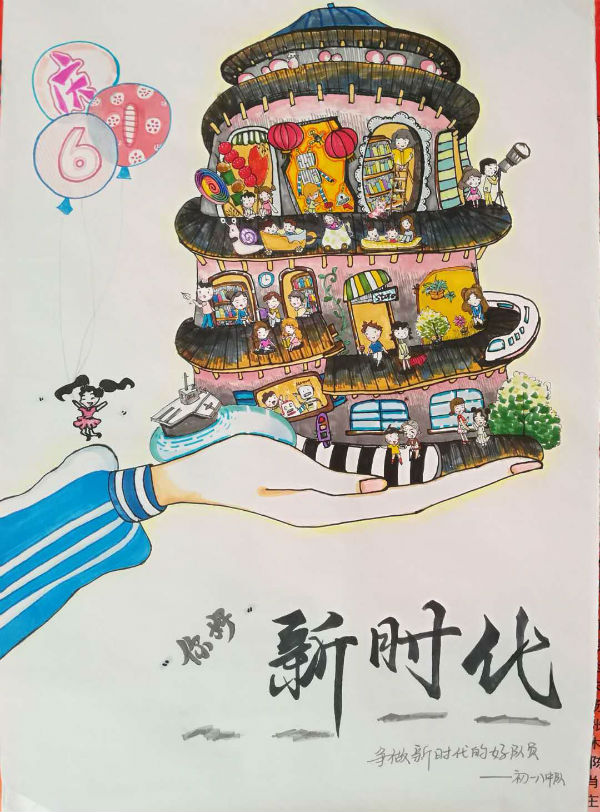 庆
6 1
"你好"
新时代
争做新时代的好队员
——初一八中队